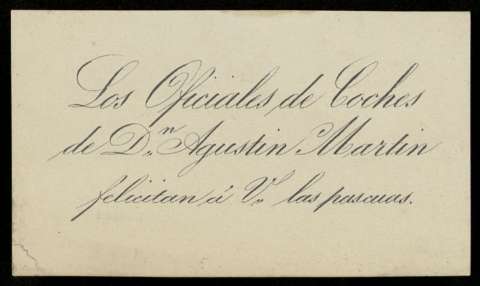 Los Oficiales de Coches
de D.ⁿ Agustin Martin
felicitan á V. las pascuas.